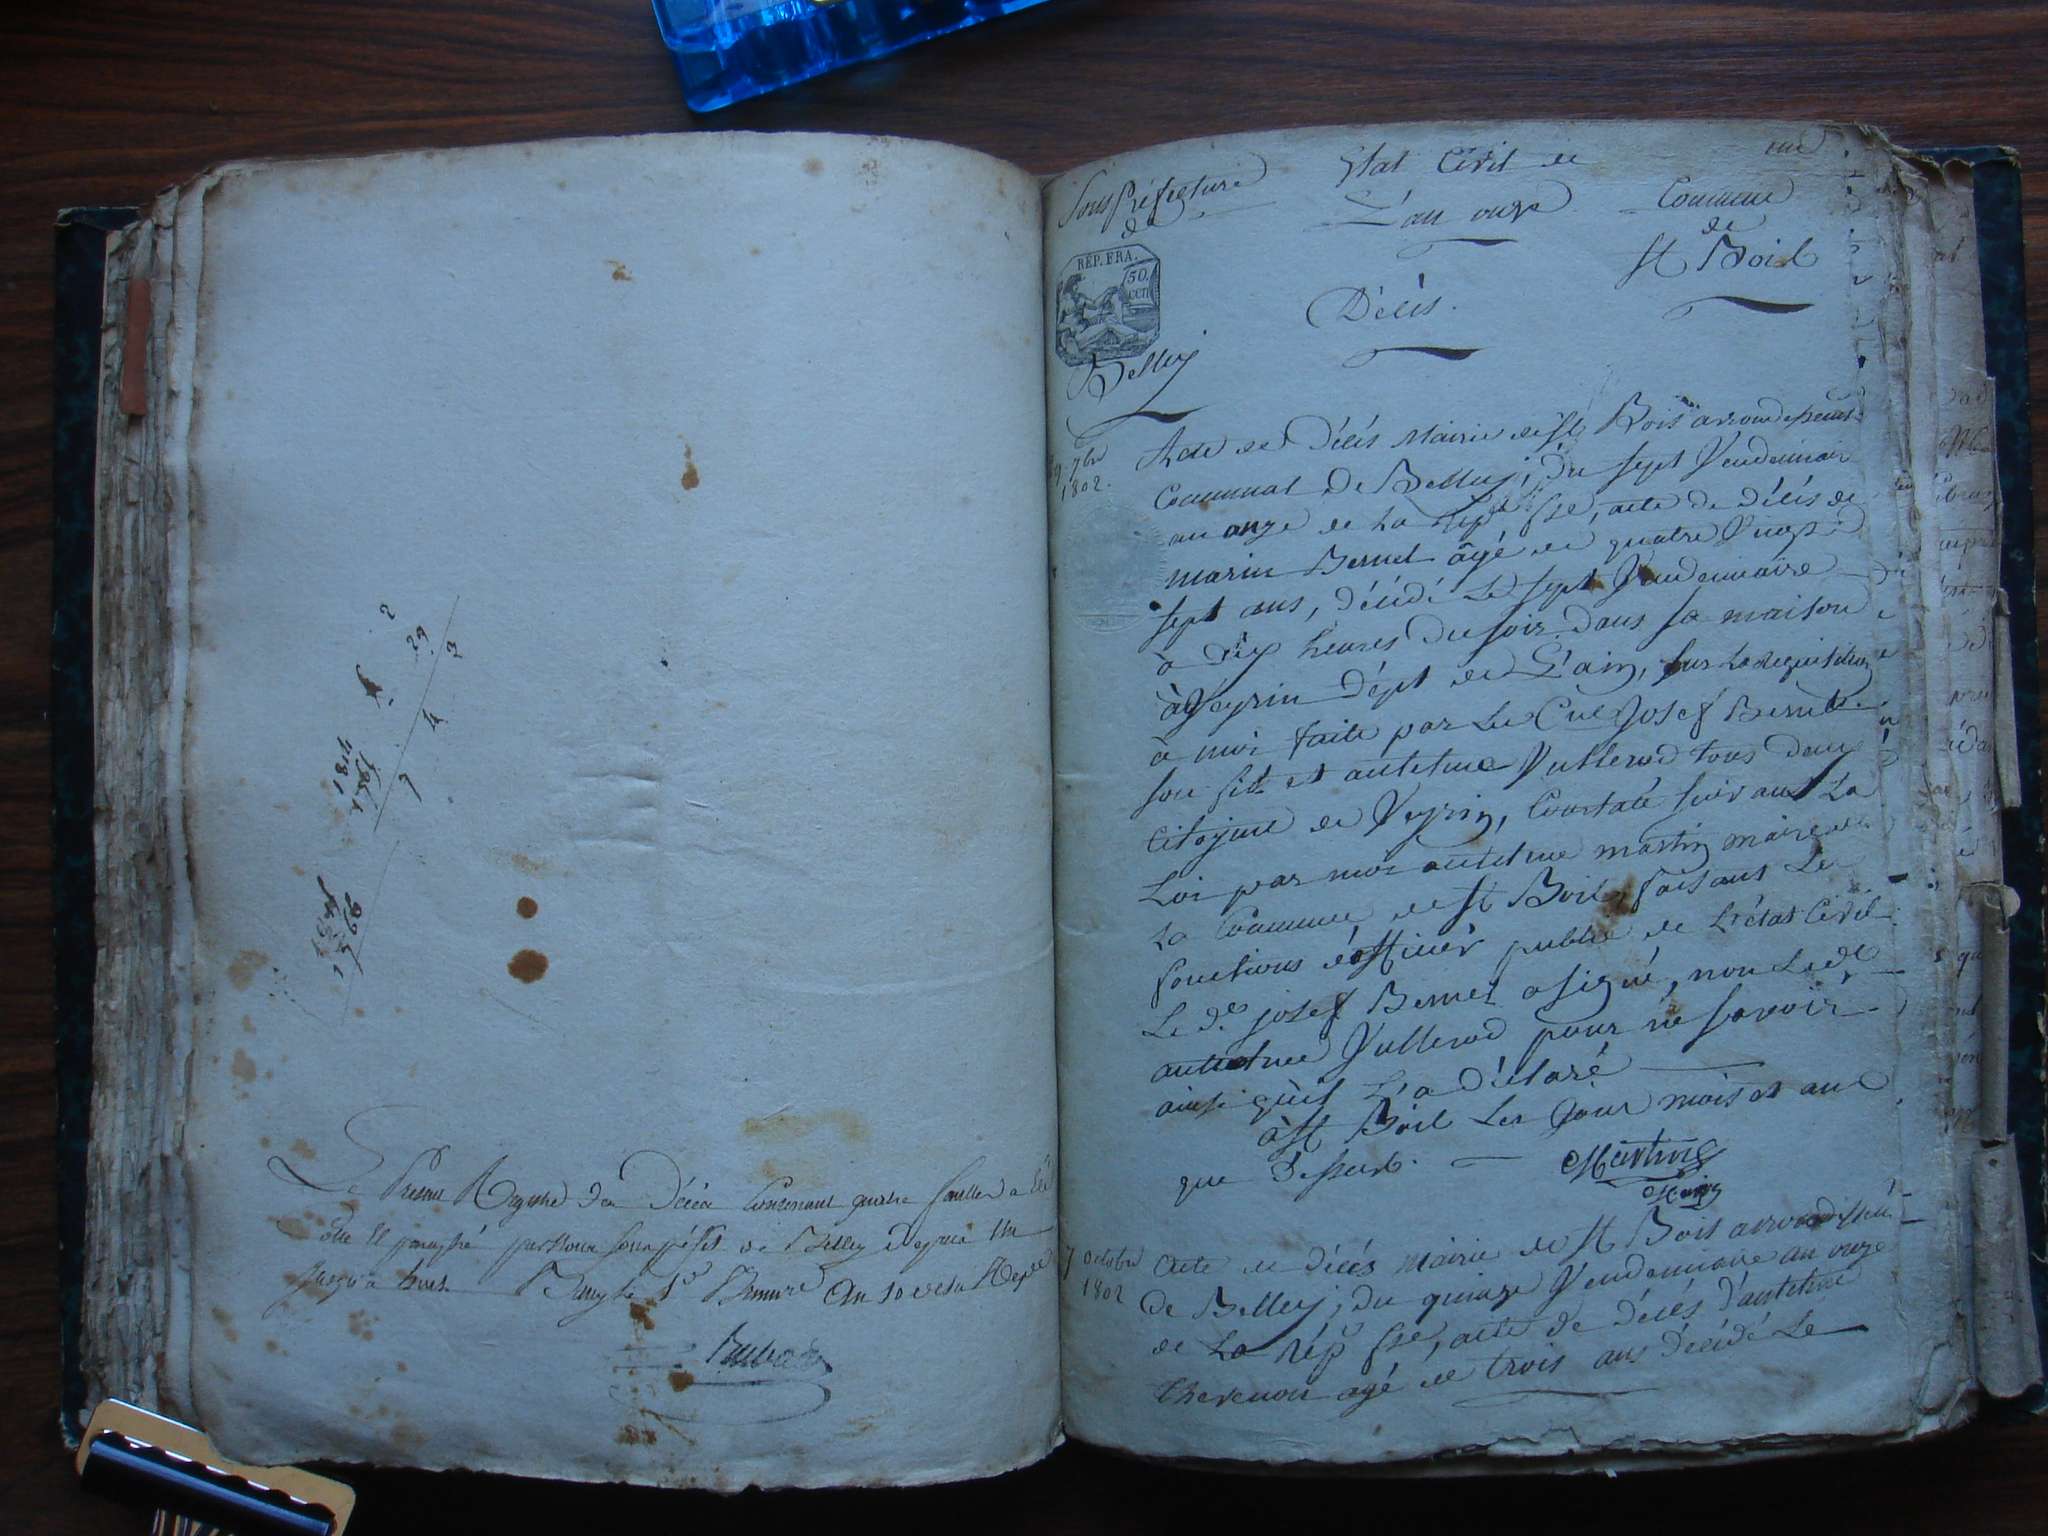 2
29
3
4
1781
Le Présent Registre des Décès Contenant quatre feuilles a été
coté et paraphé par nous sous préfet de Belley depuis un
jusqu'a huit. Belley le 1er an 10 de la Repque
Sous Préfecture
de
REP. FRA.
50.
CEN
Belley
Etat Civil de
L'an onze
Décés.
une
Commune
de
St Boil
29. 7bre
1802.
Acte de Décés Mairie de St Bois arrondissement
Communal De Belley, du sept Vendemiair
an onze de La Repe fse, acte de Décés de
marin Bernet âgé de quatre Vingt
sept ans, Décédé Le sept Vendemiaire
à dix heures Du soir Dans sa maison
à Veyrin Dépt de L'ain, sur La requisition
à moi faite par Le Cne Josef Bernet
son fils et antelme Vullerod tous deux
Citoyens de Veyrin, Constaté suivant La
Loi par moi antelme martin maire de
La Commune de St Boil, faisant Les
fonctions d'officier public de L'état Civil
Le dt josef Bernet a signé, non Le dt
antelme Vullerod pour ne savoir
ainsi qu'il L'a déclaré
à St Boil Les Jour mois et an
que Dessus.
Martin
Maire
7 octobre
1802
Acte de Décés Mairie de St Bois arrondissemt
De Belley, du quinze Vendemiaire an onze
de La Rép fse, acte de Décés D'antelme
Thevenon agé de trois ans Décédé Le